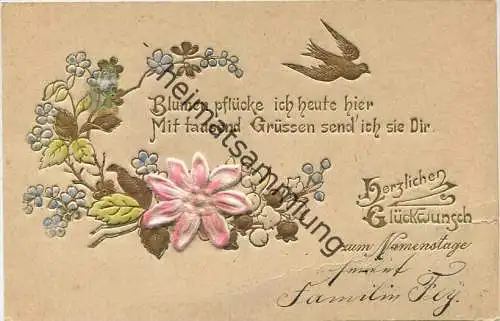 Blumen pflücke ich heute hier
Mit tausend Grüssen send' ich sie Dir.
Herzlichen
Glückwunsch
zum Namenstage
Familie Fey.
heimatsammlung